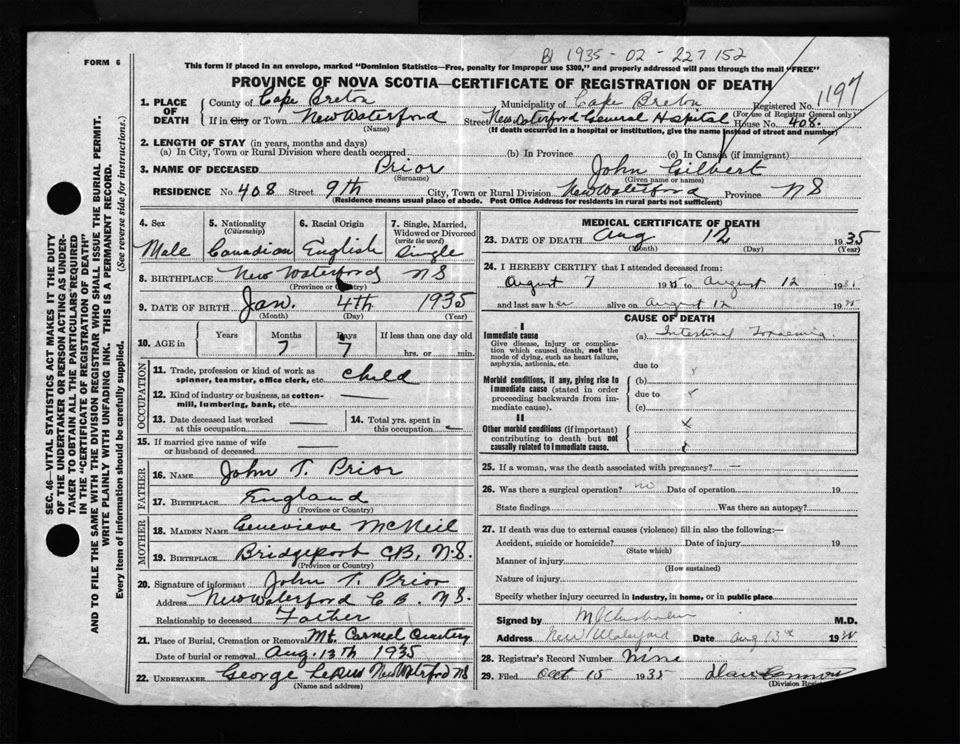 B1 1935 - 02 - 227152
FORM 6
This form if placed in an envelope, marked "Dominion Statistics—Free, penalty for improper use $300," and properly addressed will pass through the mail "FREE"
PROVINCE OF NOVA SCOTIA—CERTIFICATE OF REGISTRATION OF DEATH
1197
1. PLACE OF DEATH
County of Cape Breton Municipality of Cape Breton Registered No.
(For use of Registrar General only)
If in City or Town New Waterford Street New Waterford General Hospital House No. 408.
(Name) (If death occurred in a hospital or institution, give the name instead of street and number)
2. LENGTH OF STAY (in years, months and days)
(a) In City, Town or Rural Division where death occurred (b) In Province (c) In Canada (if immigrant)
3. NAME OF DECEASED Prior John Gilbert
(Surname) (Given name or names)
RESIDENCE No. 408 Street 9th City, Town or Rural Division New Waterford Province NS
(Residence means usual place of abode. Post Office Address for residents in rural parts not sufficient)
4. Sex
Male
5. Nationality
(Citizenship)
Canadian
6. Racial Origin
English
7. Single, Married, Widowed or Divorced
(write the word)
Single
8. BIRTHPLACE New Waterford NS
(Province or Country)
9. DATE OF BIRTH Jan. 4th 1935
(Month) (Day) (Year)
10. AGE in
Years Months Days If less than one day old
7 7 hrs. or min.
OCCUPATION
11. Trade, profession or kind of work as spinner, teamster, office clerk, etc. child
12. Kind of industry or business, as cotton-mill, lumbering, bank, etc. —
13. Date deceased last worked at this occupation —
14. Total yrs. spent in this occupation —
15. If married give name of wife or husband of deceased —
FATHER
16. NAME John T. Prior
17. BIRTHPLACE England
(Province or Country)
MOTHER
18. MAIDEN NAME Genevieve McNeil
19. BIRTHPLACE Bridgeport CB, N.S.
(Province or Country)
20. Signature of informant John T. Prior
Address New Waterford C.B. N.S.
Relationship to deceased Father
21. Place of Burial, Cremation or Removal Mt. Carmel Cemetery
Date of burial or removal Aug. 13th 1935
22. UNDERTAKER George New Waterford NS
(Name and address)
MEDICAL CERTIFICATE OF DEATH
23. DATE OF DEATH Aug 12 1935
(Month) (Day) (Year)
24. I HEREBY CERTIFY that I attended deceased from:
August 7 1935 to August 12 1935
and last saw h alive on August 12 1935
CAUSE OF DEATH
I
Immediate cause
Give disease, injury or complication which caused death, not the mode of dying, such as heart failure, asphyxia, asthenia, etc.
(a) Intestinal
due to
Morbid conditions, if any, giving rise to immediate cause (stated in order proceeding backwards from immediate cause).
(b)
due to
(c)
II
Other morbid conditions (if important) contributing to death but not causally related to immediate cause.
25. If a woman, was the death associated with pregnancy? —
26. Was there a surgical operation? no Date of operation 19
State findings Was there an autopsy?
27. If death was due to external causes (violence) fill in also the following:—
Accident, suicide or homicide? Date of injury 19
(State which)
Manner of injury
(How sustained)
Nature of injury
Specify whether injury occurred in industry, in home, or in public place
Signed by M.D.
Address New Waterford Date Aug 13th 1935
28. Registrar's Record Number Nine
29. Filed Oct 15 1935
(Division Registrar)
SEC. 46—VITAL STATISTICS ACT MAKES IT THE DUTY OF THE UNDERTAKER OR PERSON ACTING AS UNDERTAKER TO OBTAIN ALL THE PARTICULARS REQUIRED IN THE "CERTIFICATE OF REGISTRATION OF DEATH" AND TO FILE THE SAME WITH THE DIVISION REGISTRAR WHO SHALL ISSUE THE BURIAL PERMIT.
WRITE PLAINLY WITH UNFADING INK. THIS IS A PERMANENT RECORD.
Every item of information should be carefully supplied. (See reverse side for instructions.)